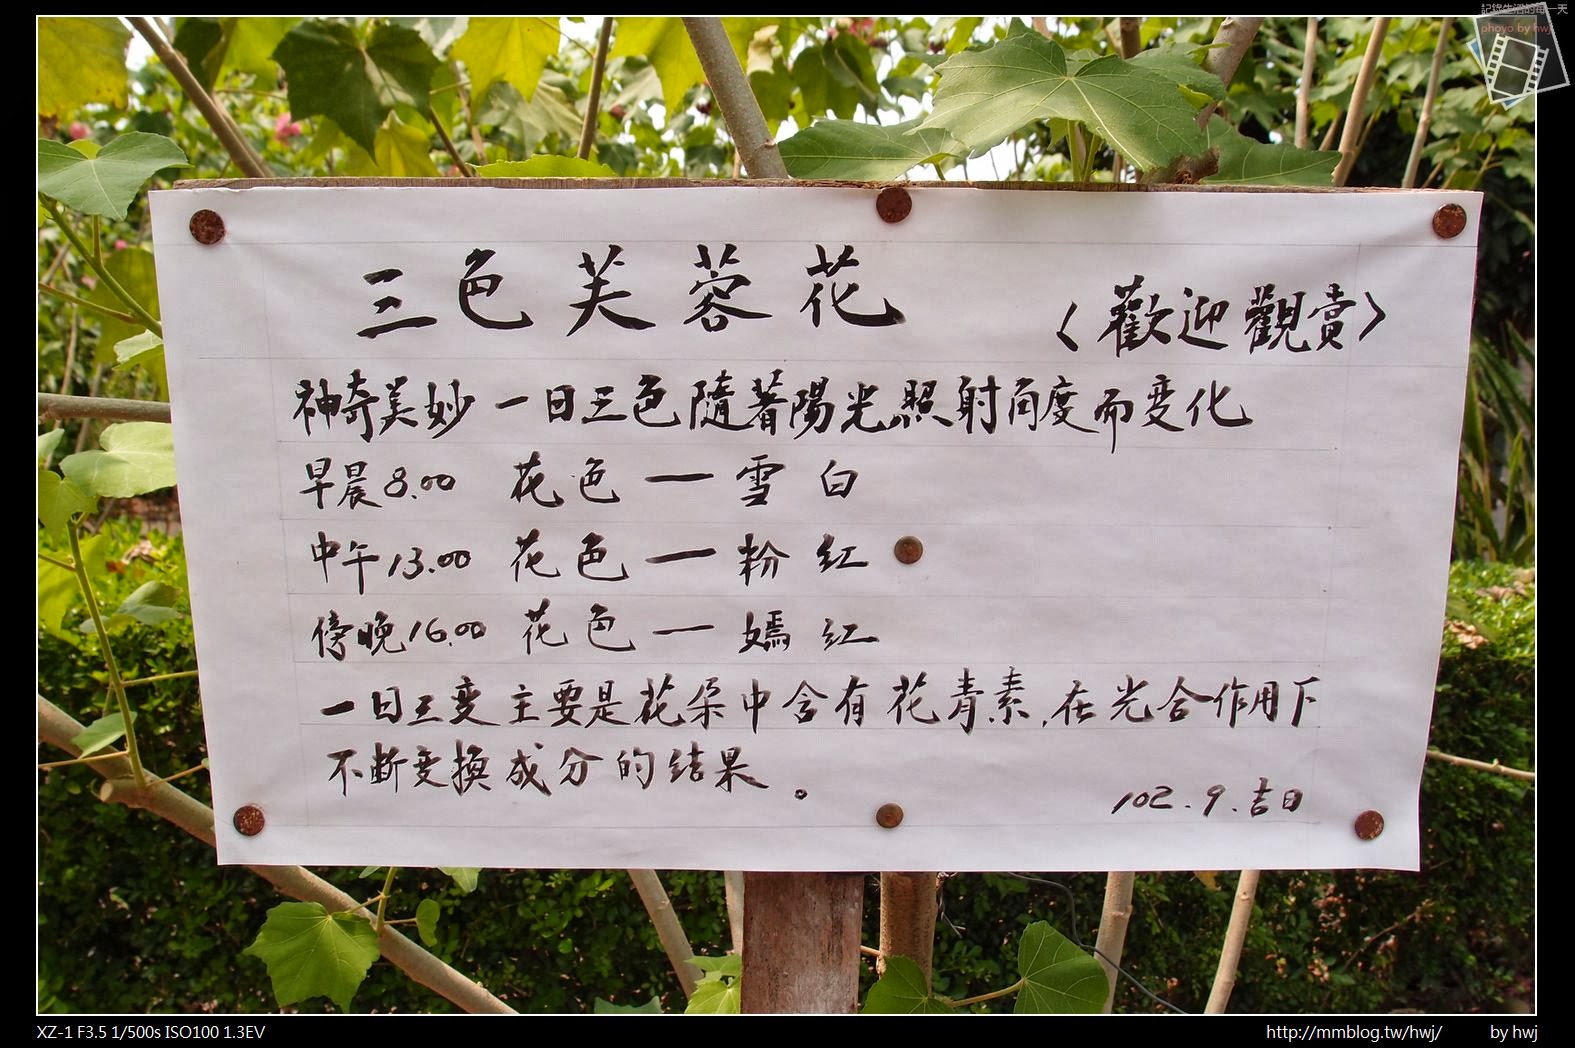 記錄生活的每一天
phoyo by hwj
三色芙蓉花 〈歡迎觀賞〉
神奇美妙一日三色隨著陽光照射角度而変化
早晨8.00 花色一雪白
中午13.00 花色一粉紅
傍晚16.00 花色一嫣紅
一日三変主要是花朵中含有花青素,在光合作用下
不斷变換成分的結果。
102.9.吉日
XZ-1 F3.5 1/500s ISO100 1.3EV
http://mmblog.tw/hwj/ by hwj